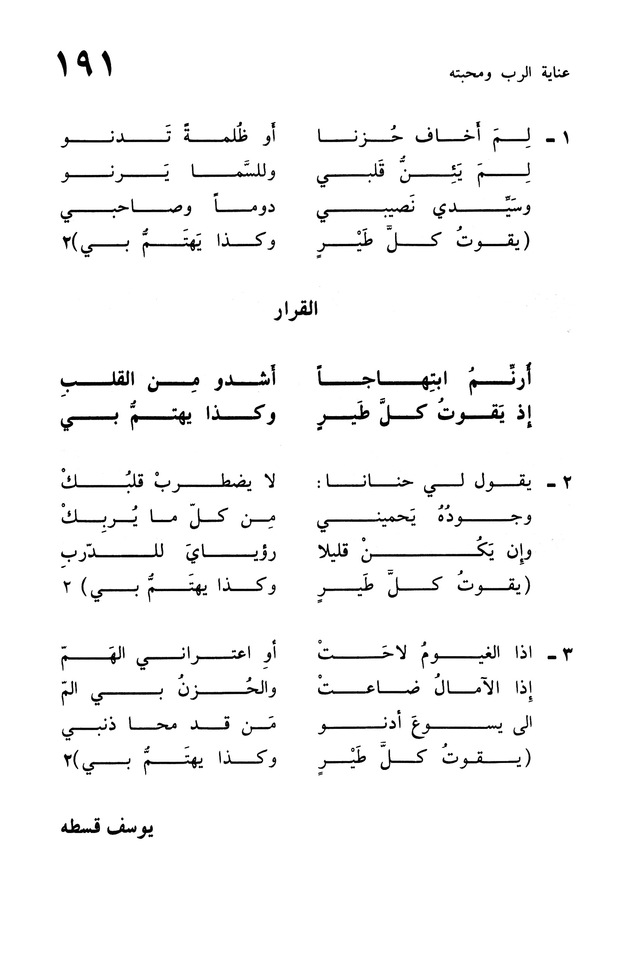 عناية الرب ومحبته ١٩١
١ - لِمَ أَخاف حُزنا أَو ظُلمةً تَدنو
لِمَ يَئِنُّ قَلبي وللسَّما يَرنو
وسَيِّدي نَصيبي دوماً وصاحبي
(يقوتُ كلَّ طَيْرٍ وكذا يَهتَمُّ بي)٢
القرار
أُرنِّمُ ابتِهاجاً أَشدو مِن القلبِ
إِذ يَقوتُ كلَّ طَيرٍ وكذا يهتمُّ بي
٢ - يقول لي حنانا: لا يضطربْ قلبُكْ
وجودُهُ يَحميني مِن كلّ ما يُربِكْ
وإِن يَكُنْ قليلا رؤيايَ للدّربِ
(يقوتُ كلَّ طَيرٍ وكذا يهتَمُّ بي) ٢
٣ - اذا الغيومُ لاحَتْ أوِ اعتراني الهَمّ
إِذا الآمالُ ضاعتْ والحُزنُ بي المّ
الى يسوعَ أدنو مَن قد محا ذنبي
(يقوتُ كلَّ طَيْرٍ وكذا يهتَمُّ بي)٢
يوسف قسطه